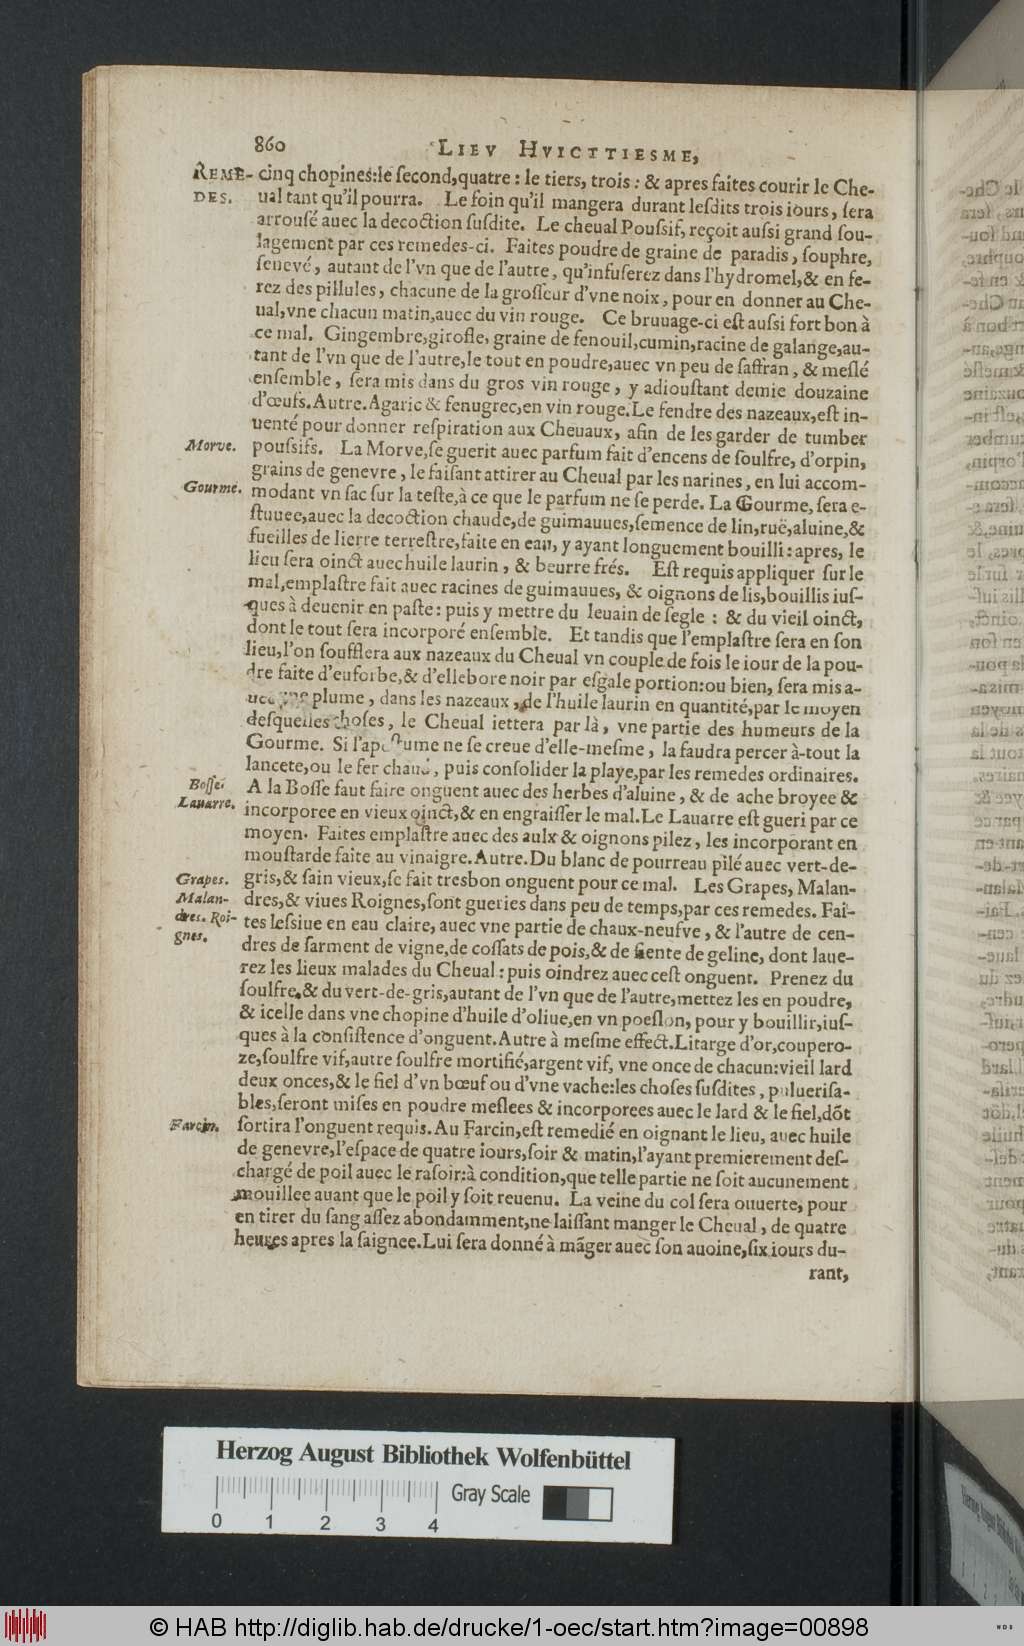 860 LIEV HVICTTIESME,
REME- cinq chopines:le ſecond,quatre : le tiers, trois : & apres faites courir le Che-
DES. ual tant qu'il pourra. Le foin qu'il mangera durant leſdits trois iours, ſera
arrouſé auec la decoction ſuſdite. Le cheual Pouſsif, reçoit auſsi grand ſou-
lagement par ces remedes-ci. Faites poudre de graine de paradis, ſouphre,
ſenevé, autant de l'vn que de l'autre, qu'infuſerez dans l'hydromel,& en fe-
rez des pillules, chacune de la groſſeur d'vne noix, pour en donner au Che-
ual,vne chacun matin,auec du vin rouge. Ce bruuage-ci eſt auſsi fort bon à
ce mal. Gingembre,girofle, graine de fenouil,cumin,racine de galange,au-
tant de l'vn que de l'autre,le tout en poudre,auec vn peu de ſaffran, & meſlé
enſemble, ſera mis dans du gros vin rouge, y adiouſtant demie douzaine
d'œufs.Autre.Agaric & fenugrec,en vin rouge.Le fendre des nazeaux,eſt in-
uenté pour donner reſpiration aux Cheuaux, afin de les garder de tumber
Morve. pouſsifs. La Morve,ſe guerit auec parfum fait d'encens de ſoulfre, d'orpin,
grains de genevre, le faiſant attirer au Cheual par les narines, en lui accom-
Gourme. modant vn ſac ſur la teſte,à ce que le parfum ne ſe perde. La Gourme, ſera e-
ſtuuee,auec la decoction chaude,de guimauues,ſemence de lin,ruë,aluine,&
fueilles de lierre terreſtre,faite en eau, y ayant longuement bouilli : apres, le
lieu ſera oinct auec huile laurin, & beurre frés. Eſt requis appliquer ſur le
mal,emplaſtre fait auec racines de guimauues, & oignons de lis,bouillis iuſ-
ques à deuenir en paſte : puis y mettre du leuain de ſegle : & du vieil oinct,
dont le tout ſera incorporé enſemble. Et tandis que l'emplaſtre ſera en ſon
lieu,l'on ſoufflera aux nazeaux du Cheual vn couple de fois le iour de la pou-
dre faite d'euforbe,& d'ellebore noir par eſgale portion:ou bien, ſera mis a-
uec vne plume, dans les nazeaux, de l'huile laurin en quantité,par le moyen
deſquelles choſes, le Cheual iettera par là, vne partie des humeurs de la
Gourme. Si l'apoſtume ne ſe creue d'elle-meſme, la faudra percer à-tout la
lancete,ou le fer chaud, puis conſolider la playe,par les remedes ordinaires.
Boſſe. A la Boſſe faut faire onguent auec des herbes d'aluine, & de ache broyee &
Lauarre. incorporee en vieux oinct,& en engraiſſer le mal.Le Lauarre eſt gueri par ce
moyen. Faites emplaſtre auec des aulx & oignons pilez, les incorporant en
mouſtarde faite au vinaigre.Autre.Du blanc de pourreau pilé auec vert-de-
Grapes. gris,& ſain vieux,ſe fait tresbon onguent pour ce mal. Les Grapes, Malan-
Malan- dres,& viues Roignes,ſont gueries dans peu de temps,par ces remedes. Fai-
dres. Roi- tes leſsiue en eau claire, auec vne partie de chaux-neufve, & l'autre de cen-
gnes. dres de ſarment de vigne,de coſſats de pois,& de fiente de geline, dont laue-
rez les lieux malades du Cheual : puis oindrez auec ceſt onguent. Prenez du
ſoulfre,& du vert-de-gris,autant de l'vn que de l'autre,mettez les en poudre,
& icelle dans vne chopine d'huile d'oliue,en vn poeſlon, pour y bouillir,iuſ-
ques à la conſiſtence d'onguent.Autre à meſme effect.Litarge d'or,coupero-
ze,ſoulfre vif,autre ſoulfre mortifié,argent vif, vne once de chacun:vieil lard
deux onces,& le fiel d'vn bœuf ou d'vne vache:les choſes ſuſdites, pulueriſa-
bles,ſeront miſes en poudre meſlees & incorporees auec le lard & le fiel,dõt
Farcin. ſortira l'onguent requis. Au Farcin,eſt remedié en oignant le lieu, auec huile
de genevre,l'eſpace de quatre iours,ſoir & matin,l'ayant premierement deſ-
chargé de poil auec le raſoir:à condition,que telle partie ne ſoit aucunement
mouillee auant que le poil y ſoit reuenu. La veine du col ſera ouuerte, pour
en tirer du ſang aſſez abondamment,ne laiſſant manger le Cheual, de quatre
heures apres la ſaignee.Lui ſera donné à mãger auec ſon auoine,ſix iours du-
rant,
Herzog August Bibliothek Wolfenbüttel
Gray Scale
0 1 2 3 4
© HAB http://diglib.hab.de/drucke/1-oec/start.htm?image=00898